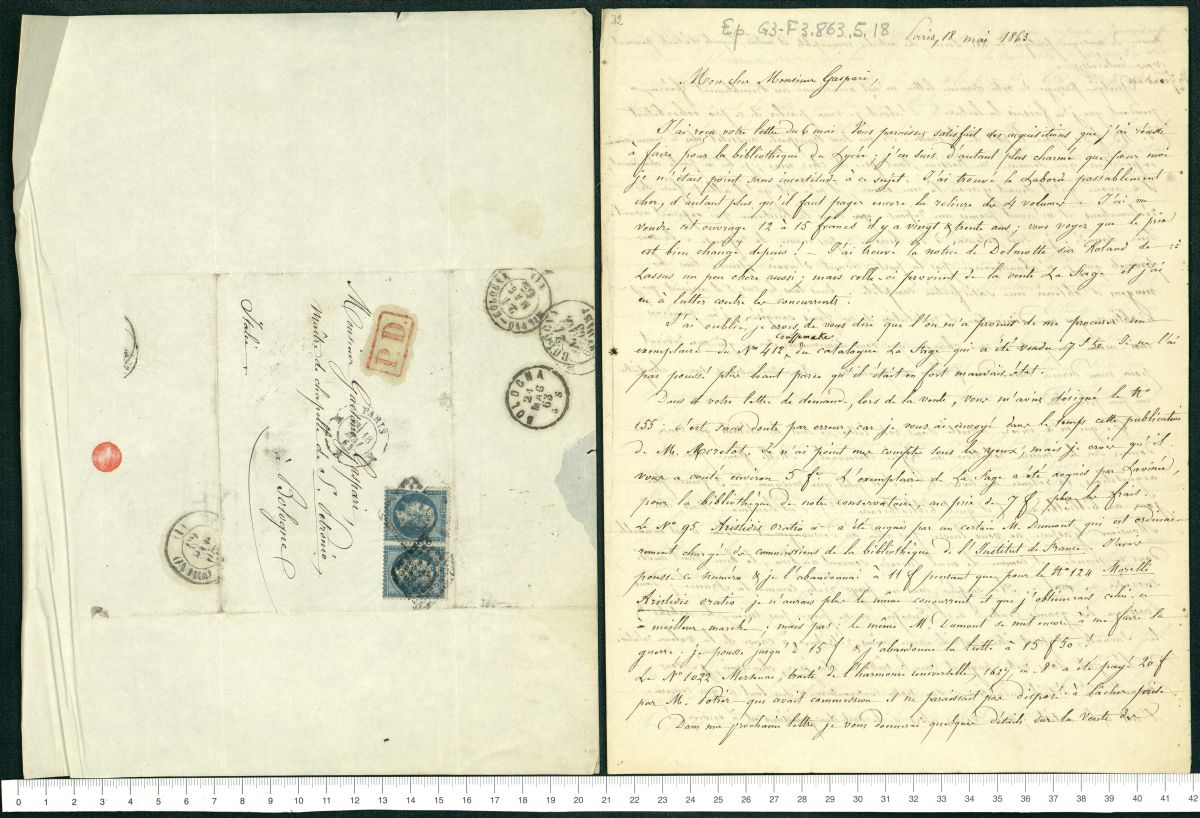 P.D.
Monsieur Gaetano Gaspari,
Maître de chapelle de St. Petronio,
à Bologne
Italie
PARIS
18
BOLOGNA
21
MAG
63
32
Ep. G3-F3.863.5.18
Paris, 18 mai 1863
Mon cher Monsieur Gaspari,
J'ai reçu votre lettre du 6 mai. Vous paraissez satisfait des acquisitions que j'ai réussi
à faire pour la bibliothèque du Lycée; j'en suis d'autant plus charmé que pour moi
je n'étais point sans incertitude à ce sujet. J'ai trouvé le Laborde passablement
cher, d'autant plus qu'il faut payer encore la reliure des 4 volumes. J'ai vu
vendre cet ouvrage 12 à 15 francs il y a vingt & trente ans; vous voyez que le prix
est bien changé depuis! – J'ai trouvé la notice de Delmotte sur Roland de
Lassus un peu chère aussi; mais celle-ci provient de la vente La Fage et j'ai
eu à lutter contre les concurrents.
J'ai oublié, je crois, de vous dire que l'on m'a promis de me procurer un
exemplaire du No 412 du catalogue La Fage qui a été vendu 17 f 50. Je ne l'ai
pas poussé plus haut parce qu'il était en fort mauvais état.
Dans votre lettre de demande, lors de la vente, vous m'aviez désigné le No
155: c'est sans doute par erreur, car je vous ai envoyé dans le temps cette publication
de M. Morelot. Je n'ai point mes comptes sous les yeux, mais je crois qu'il
vous a coûté environ 5 f. L'exemplaire de La Fage a été acquis par Lavinée,
pour la bibliothèque de notre conservatoire, au prix de 7 f. plus les frais.
Le No 95 Aristidis oratio a été acquis par un certain M. Dumont qui est ordinai-
rement chargé des commissions de la bibliothèque de l'Institut de France. J'avais
poussé ce numéro & je l'abandonnai à 11 f pensant que pour le No 124 Morelli
Aristidis oratio je n'aurais plus le même concurrent et que j'obtiendrais celui-ci
à meilleur marché; mais pas: le même M. Dumont se mit encore à me faire la
guerre: je poussai jusqu'à 15 f & j'abandonnai la lutte à 15 f 50!
Le No 1022 Mersenne, traité de l'harmonie universelle 1627 in 8o a été payé 20 f
par M. Potier qui avait commission et ne paraissait pas disposé à lâcher prise.
Dans ma prochaine lettre je vous donnerai quelques détails sur la vente de